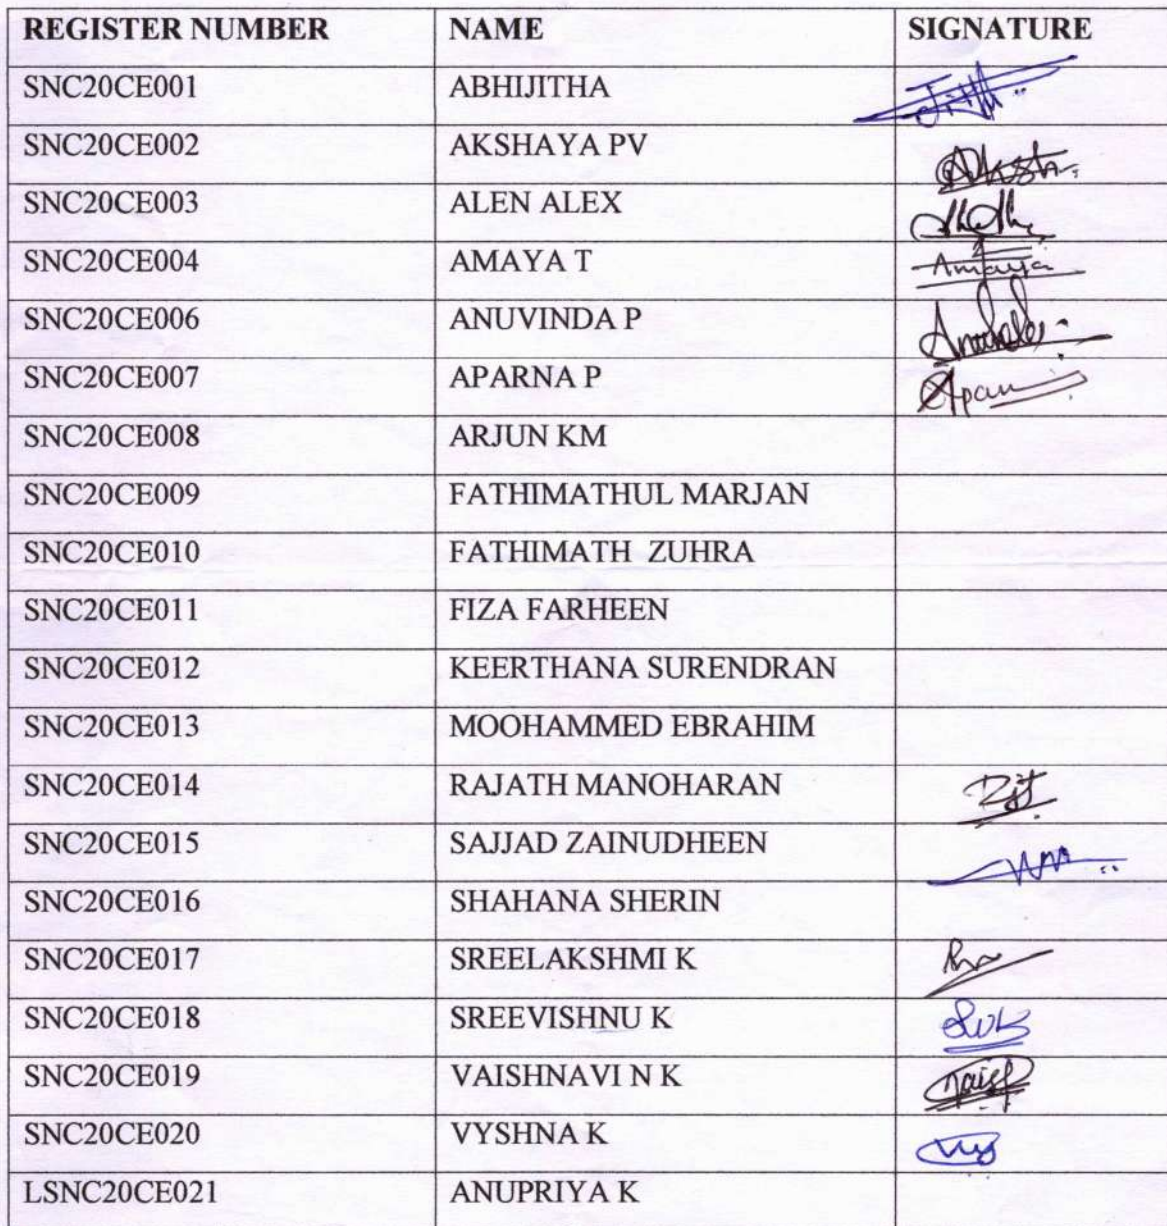 REGISTER NUMBER NAME SIGNATURE
SNC20CE001 ABHIJITHA
SNC20CE002 AKSHAYA PV
SNC20CE003 ALEN ALEX
SNC20CE004 AMAYA T Amaya
SNC20CE006 ANUVINDA P
SNC20CE007 APARNA P
SNC20CE008 ARJUN KM
SNC20CE009 FATHIMATHUL MARJAN
SNC20CE010 FATHIMATH ZUHRA
SNC20CE011 FIZA FARHEEN
SNC20CE012 KEERTHANA SURENDRAN
SNC20CE013 MOOHAMMED EBRAHIM
SNC20CE014 RAJATH MANOHARAN
SNC20CE015 SAJJAD ZAINUDHEEN
SNC20CE016 SHAHANA SHERIN
SNC20CE017 SREELAKSHMI K
SNC20CE018 SREEVISHNU K
SNC20CE019 VAISHNAVI N K
SNC20CE020 VYSHNA K
LSNC20CE021 ANUPRIYA K